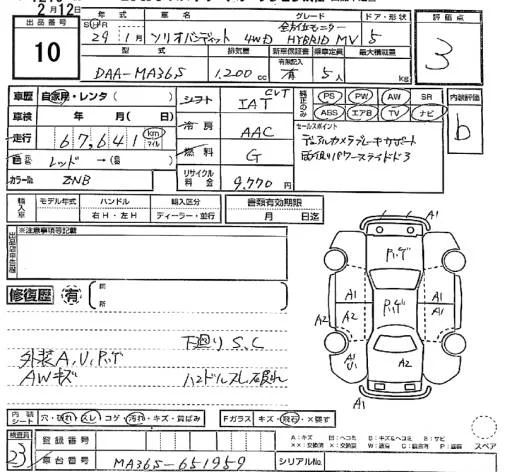 2月12日
出品番号 年式 車名 グレード ドア・形状 評価点
10
29 / 1月 ソリオバンデット 4WD 全方位モニター HYBRID MV 5
3
型式 排気量 新車保証書 乗車定員 最大積載量
DAA-MA36S 1,200 cc 有 5人 kg
車歴 自家用・レンタ( ) シフト CVT IAT
純正のみ PS PW AW SR ABS エアB TV ナビ
内装評価 b
車検 年 月( ) 冷房 AAC
走行 67,641 km マイル
セールスポイント
デュアルカメラブレーキサポート
両側パワースライドドア
燃料 G
色 レッド →( 色)
カラーNo. ZNB
リサイクル料金 9,770円
輸入車 モデル年式 ハンドル 輸入区分 書類有効期限
右H・左H ディーラー・並行 月 日迄
出品店申告 ※注意事項等記載
修復歴 有 前 所
下廻りS,C
外装A,U,P,サビ
AWキズ ハンドルスレ
A1 A1
A1 A1
A2 A2
A2
A1
U1
A1
内装シート 穴・破れ・スレ・コゲ・汚れ・キズ・質ばみ Fガラス キズ・飛石・×要す
検査員 23
登録番号
車台番号 MA36S-651959 シリアルNo.
スペア